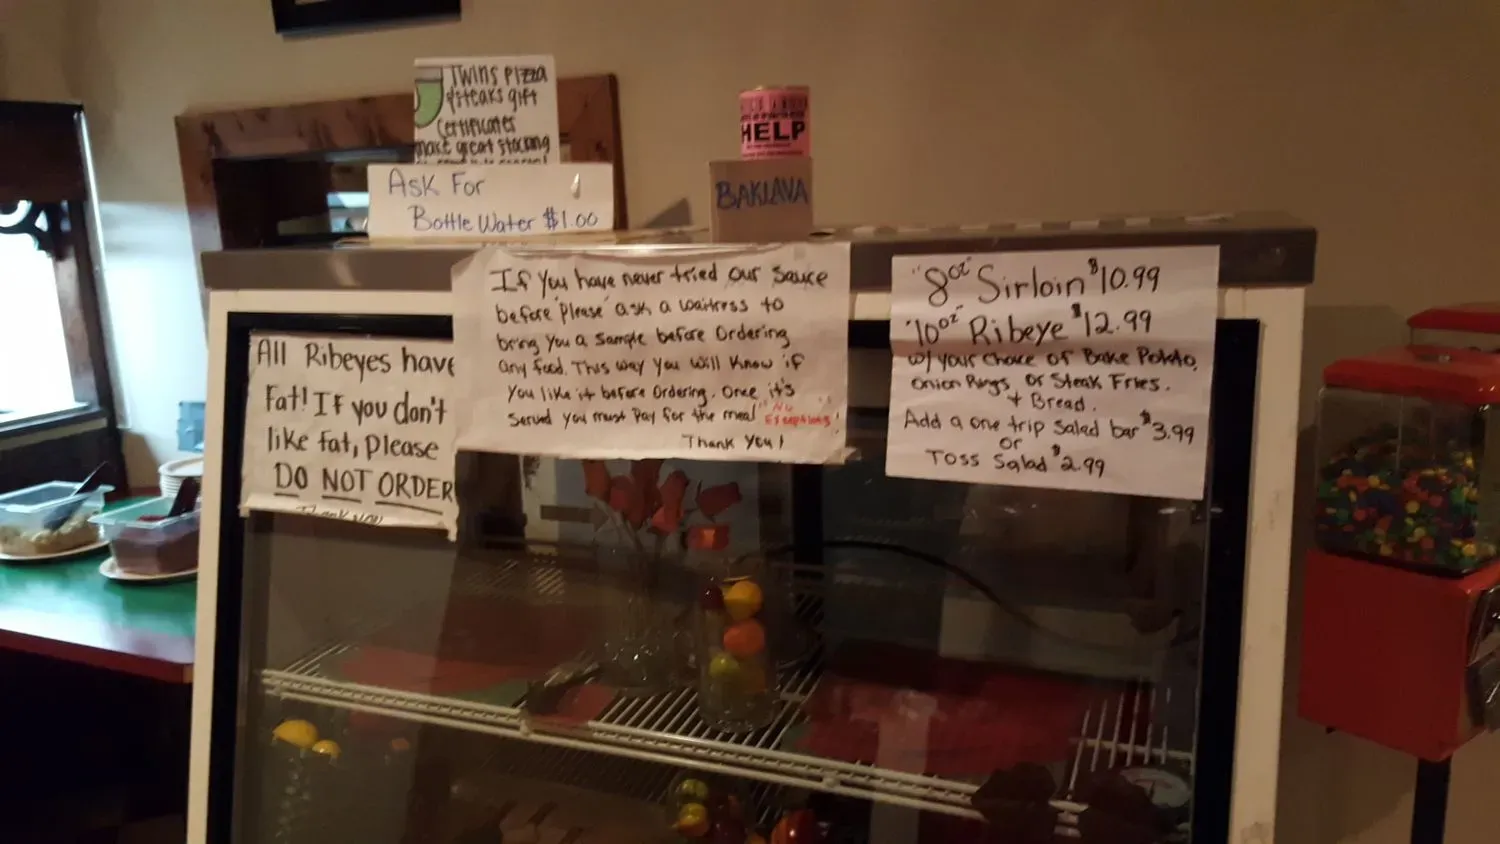 Twins Pizza
& Steaks gift
Certificates
make great stocking
Ask For
Bottle Water $1.00
HELP
BAKLAVA
All Ribeyes have
Fat! If you don't
like fat, please
DO NOT ORDER
Thank you
If you have never tried our sauce
before "please" ask a waitress to
bring you a sample before Ordering
any food. This way you will know if
you like it before Ordering. Once it's
served you must pay for the meal "No
Exceptions"!
Thank you!
"8oz" Sirloin $10.99
"10oz" Ribeye $12.99
w/ your choice of Bake Potato,
Onion Rings, or Steak Fries.
+ Bread.
Add a one trip salad bar $3.99
or
Toss Salad $2.99